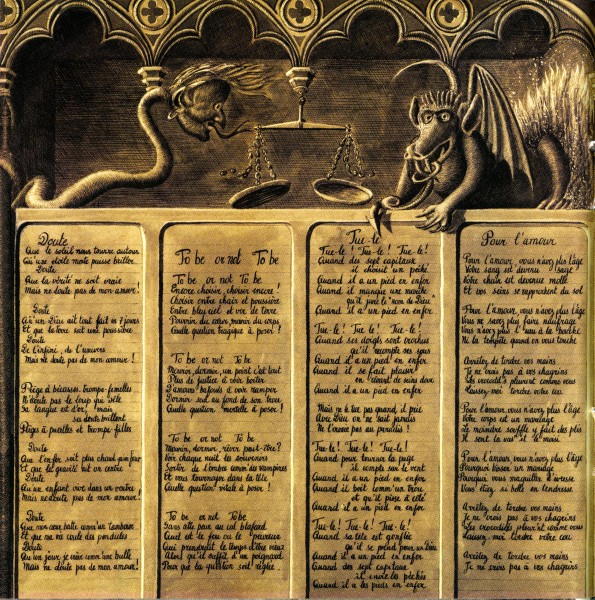 Doute
Que le soleil nous tourne autour
Qu'une etoile morte puisse briller
Doute
Que la vérité ne soit vraie
Mais ne doute pas de mon amour!
Doute
Qu'un Dieu ait tout fait en 7 jours
Et que la terre soit une poussière
Doute
De l'infini, de l'univers
Mais ne doute pas de mon amour!
Piège à bécasses, trompe-femelles
N'écoute pas le loup qui bêle
Sa langue est d'or, mais
ses dents brillent
Pièges à pucelles et trompe filles
Doute
Que l'enfer soit plus chaud qu'un four
Et que la gravité ait un centre
Doute
Qu'un enfant vive dans son ventre
Mais ne doute pas de mon amour!
Doute
Que mon cœur batte comm'un tambour
Et que ma vie coule des pendules
Doute
Qu'un jour je crève comm'une bulle
Mais ne doute pas de mon amour!
To be or not To be
To be or not To be
Encore choisir, choisir encore!
Choisir entre chair et poussière
Entre bleu ciel et ver de terre
Pourrir du cœur, mourir du corps
Quelle question tragique à poser!
To be or not To be
Mourir, dormir, un point c'est tout
Plus de justice à voir boiter
D'amours bafoués à voir ramper
Dormir seul au fond de son trou
Quelle question mortelle à poser!
To be or not To be
Mourir, dormir, rêver peut-être?
Voir chaque nuit les souvenirs
Sortir de l'ombre comm'des vampires
Et vous tournoyer dans la tête
Quelle question vitale à poser!
To be or not To be
Sans être paon au col blafard
Quel est le fou ou le pauvreux
Qui prendrait le temps d'être vieux
Alors qu'il suffit d'un poignard
Pour que la question soit réglée.
Tue-le
Tue-le! Tue-le! Tue-le!
Quand des sept capitaux
il choisit un péché
Quand il a un pied en enfer
Quand il mange une moitié
qu'il jure le nom de Dieu
Quand il a un pied en enfer
Tue-le! Tue-le! Tue-le!
Quand ses doigts sont crochus
qu'il recompte ses sous
Quand il a un pied en enfer
Quand il se fait pleurer
en rêvant de seins doux
Quand il a un pied en enfer
Mais ne le tue pas quand il prie
Avec Dieu on ne sait jamais
Ne l'envoie pas au paradis!
Tue-le! Tue-le! Tue-le!
Quand pour tourner la page
il compte sur le vent
Quand il a un pied en enfer
Quand il boit comm'un trou
et qu'il pisse à côté
Quand il a un pied en enfer
Tue-le! Tue-le! Tue-le!
Quand sa tête est gonflée
qu'il se prend pour un Dieu
Quand il a un pied en enfer
Quand des sept capitaux
il enivre les péchés
Quand il a les pieds en enfer
Pour l'amour
Pour l'amour, vous n'avez plus l'âge
Votre sang est devenu sage
Votre chair est devenue molle
Et vos seins se rapprochent du sol
Pour l'amour, vous n'avez plus l'âge
Vous ne savez plus faire naufrage
Vous n'avez plus l'eau à la bouche
Ni la tempête quand on vous touche
Arrêtez de tordre vos mains
Je ne crois pas à vos chagrins
Les crocodiles pleurent comme vous
Laissez-moi tordre votre cou
Pour l'amour vous n'avez plus l'âge
Votre corps est un marécage
Le moindre souffle y fait des plis
Pour l'amour vous n'avez plus l'âge
Pourquoi hisser un mariage
Pourquoi vous maquiller d'ivresse
Vous étiez si belle en tendresse
Arrêtez de tordre vos mains
Je ne crois pas à vos chagrins
Les crocodiles pleurent comme vous
Laissez-moi tordre votre cou
Arrêtez de tordre vos mains
Je ne crois pas à vos chagrins